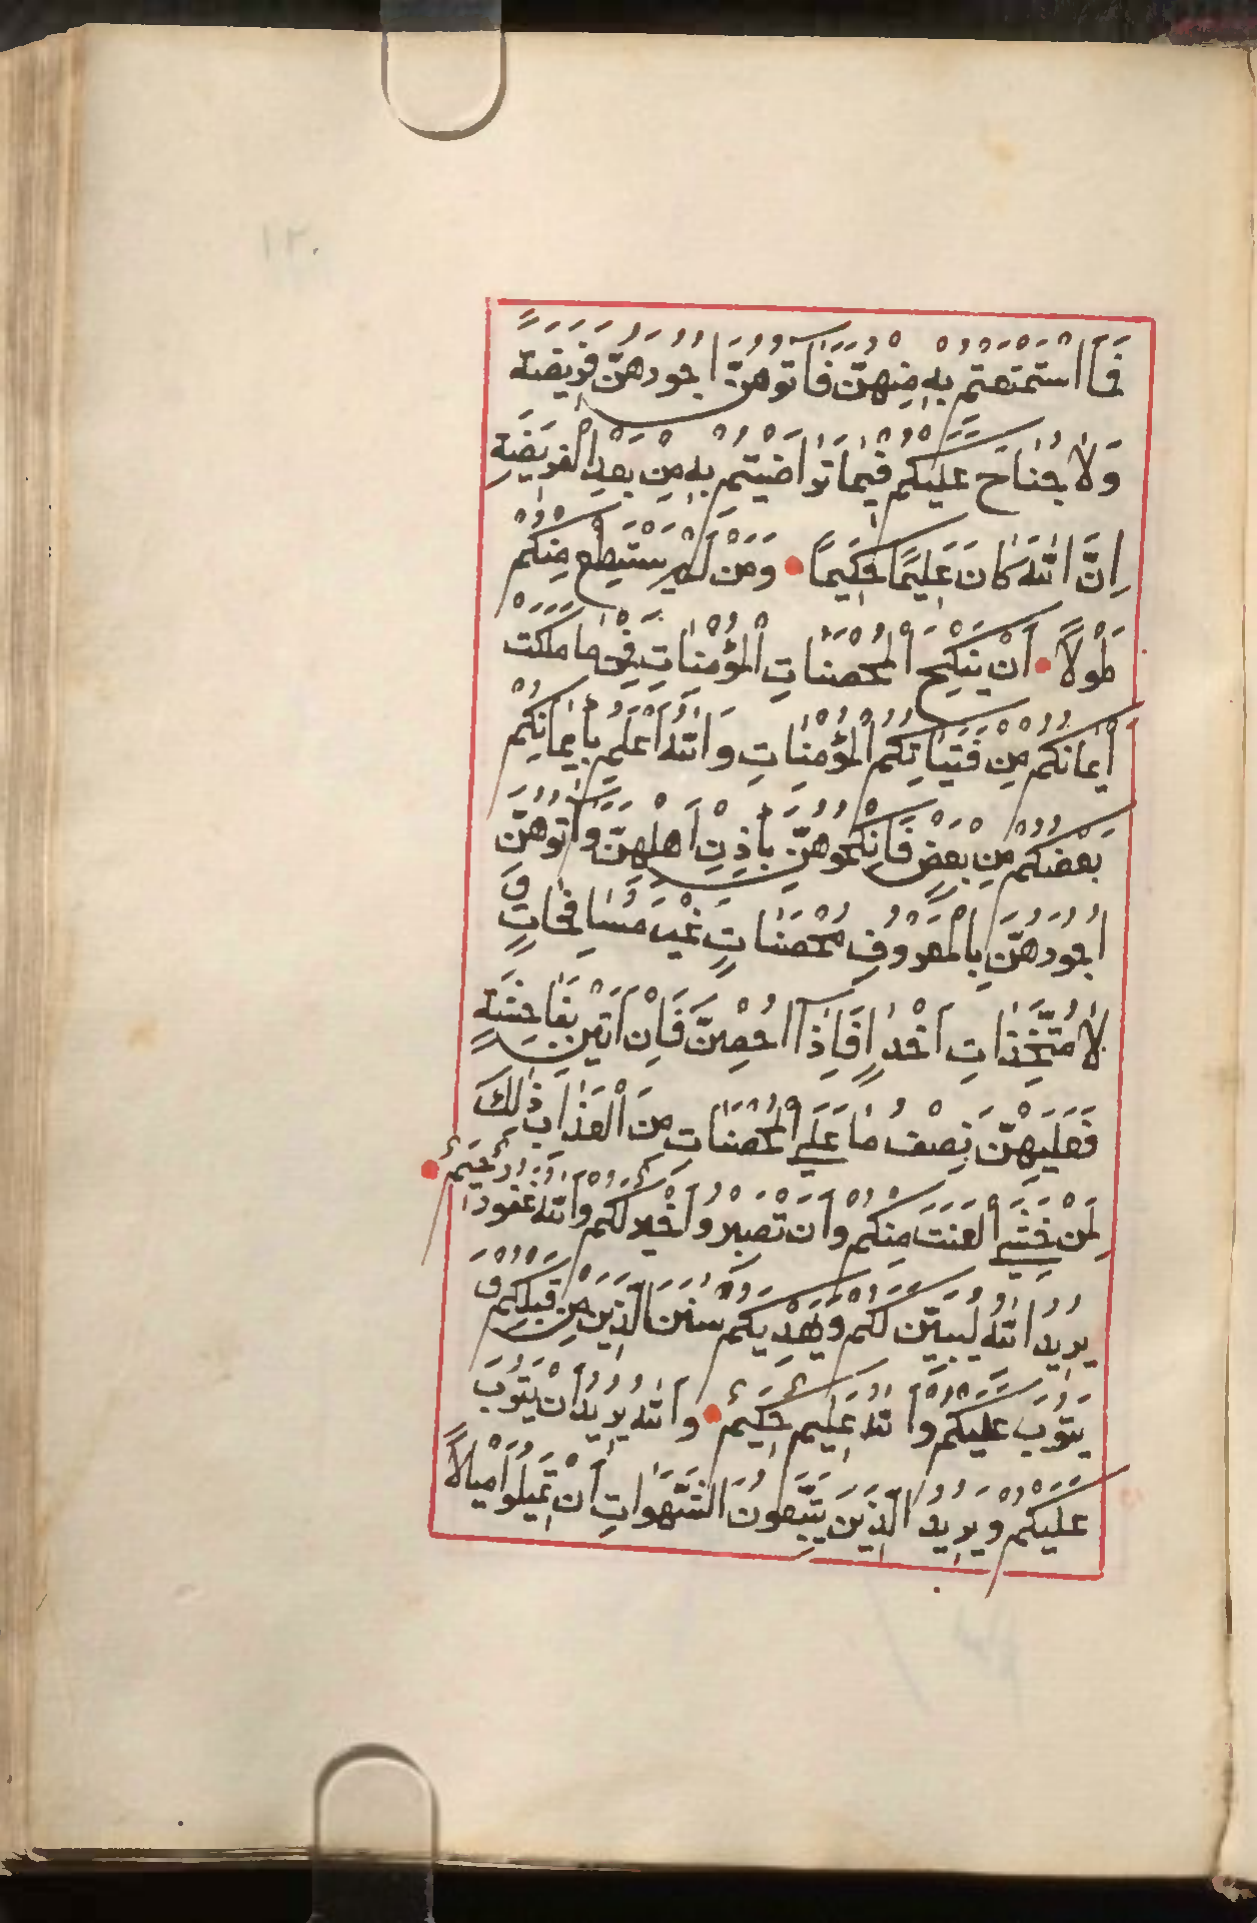 فَمَا اسْتَمْتَعْتُمْ بِهِ مِنْهُنَّ فَآتُوهُنَّ اُجُورَهُنَّ فَرِيضَةً
وَلَا جُنَاحَ عَلَيْكُمْ فِيمَا تَرَاضَيْتُمْ بِهِ مِنْ بَعْدِ الْفَرِيضَةِ
اِنَّ اللّٰهَ كَانَ عَلِيمًا حَكِيمًا وَمَنْ لَمْ يَسْتَطِعْ مِنْكُمْ
طَوْلًا اَنْ يَنْكِحَ الْمُحْصَنَاتِ الْمُؤْمِنَاتِ فَمِنْ مَا مَلَكَتْ
اَيْمَانُكُمْ مِنْ فَتَيَاتِكُمُ الْمُؤْمِنَاتِ وَاللّٰهُ اَعْلَمُ بِاِيمَانِكُمْ
بَعْضُكُمْ مِنْ بَعْضٍ فَانْكِحُوهُنَّ بِاِذْنِ اَهْلِهِنَّ وَآتُوهُنَّ
اُجُورَهُنَّ بِالْمَعْرُوفِ مُحْصَنَاتٍ غَيْرَ مُسَافِحَاتٍ وَ
لَا مُتَّخِذَاتِ اَخْدَاٍ فَاِذَآ اُحْصِنَّ فَاِنْ اَتَيْنَ بِفَاحِشَةٍ
فَعَلَيْهِنَّ نِصْفُ مَا عَلَى الْمُحْصَنَاتِ مِنَ الْعَذَابِ ذٰلِكَ
لِمَنْ خَشِيَ الْعَنَتَ مِنْكُمْ وَاَنْ تَصْبِرُوا خَيْرٌ لَكُمْ وَاللّٰهُ غَفُورٌ رَحِيمٌ
يُرِيدُ اللّٰهُ لِيُبَيِّنَ لَكُمْ وَيَهْدِيَكُمْ سُنَنَ الَّذِينَ مِنْ قَبْلِكُمْ وَ
يَتُوبَ عَلَيْكُمْ وَاللّٰهُ عَلِيمٌ حَكِيمٌ وَاللّٰهُ يُرِيدُ اَنْ يَتُوبَ
عَلَيْكُمْ وَيُرِيدُ الَّذِينَ يَتَّبِعُونَ الشَّهَوَاتِ اَنْ تَمِيلُوا مَيْلًا